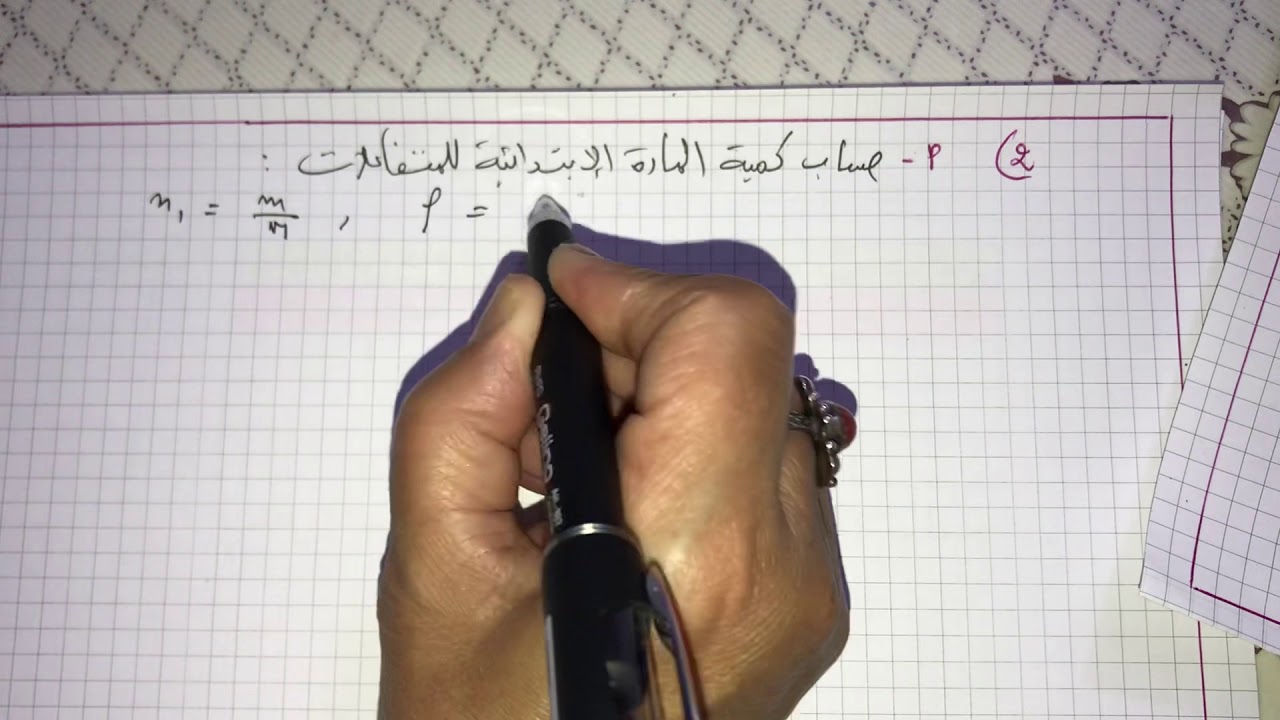 2) أ - حساب كمية المادة الإبتدائية للمتفاعلات :
n₁ = m/M , ρ =
Cello